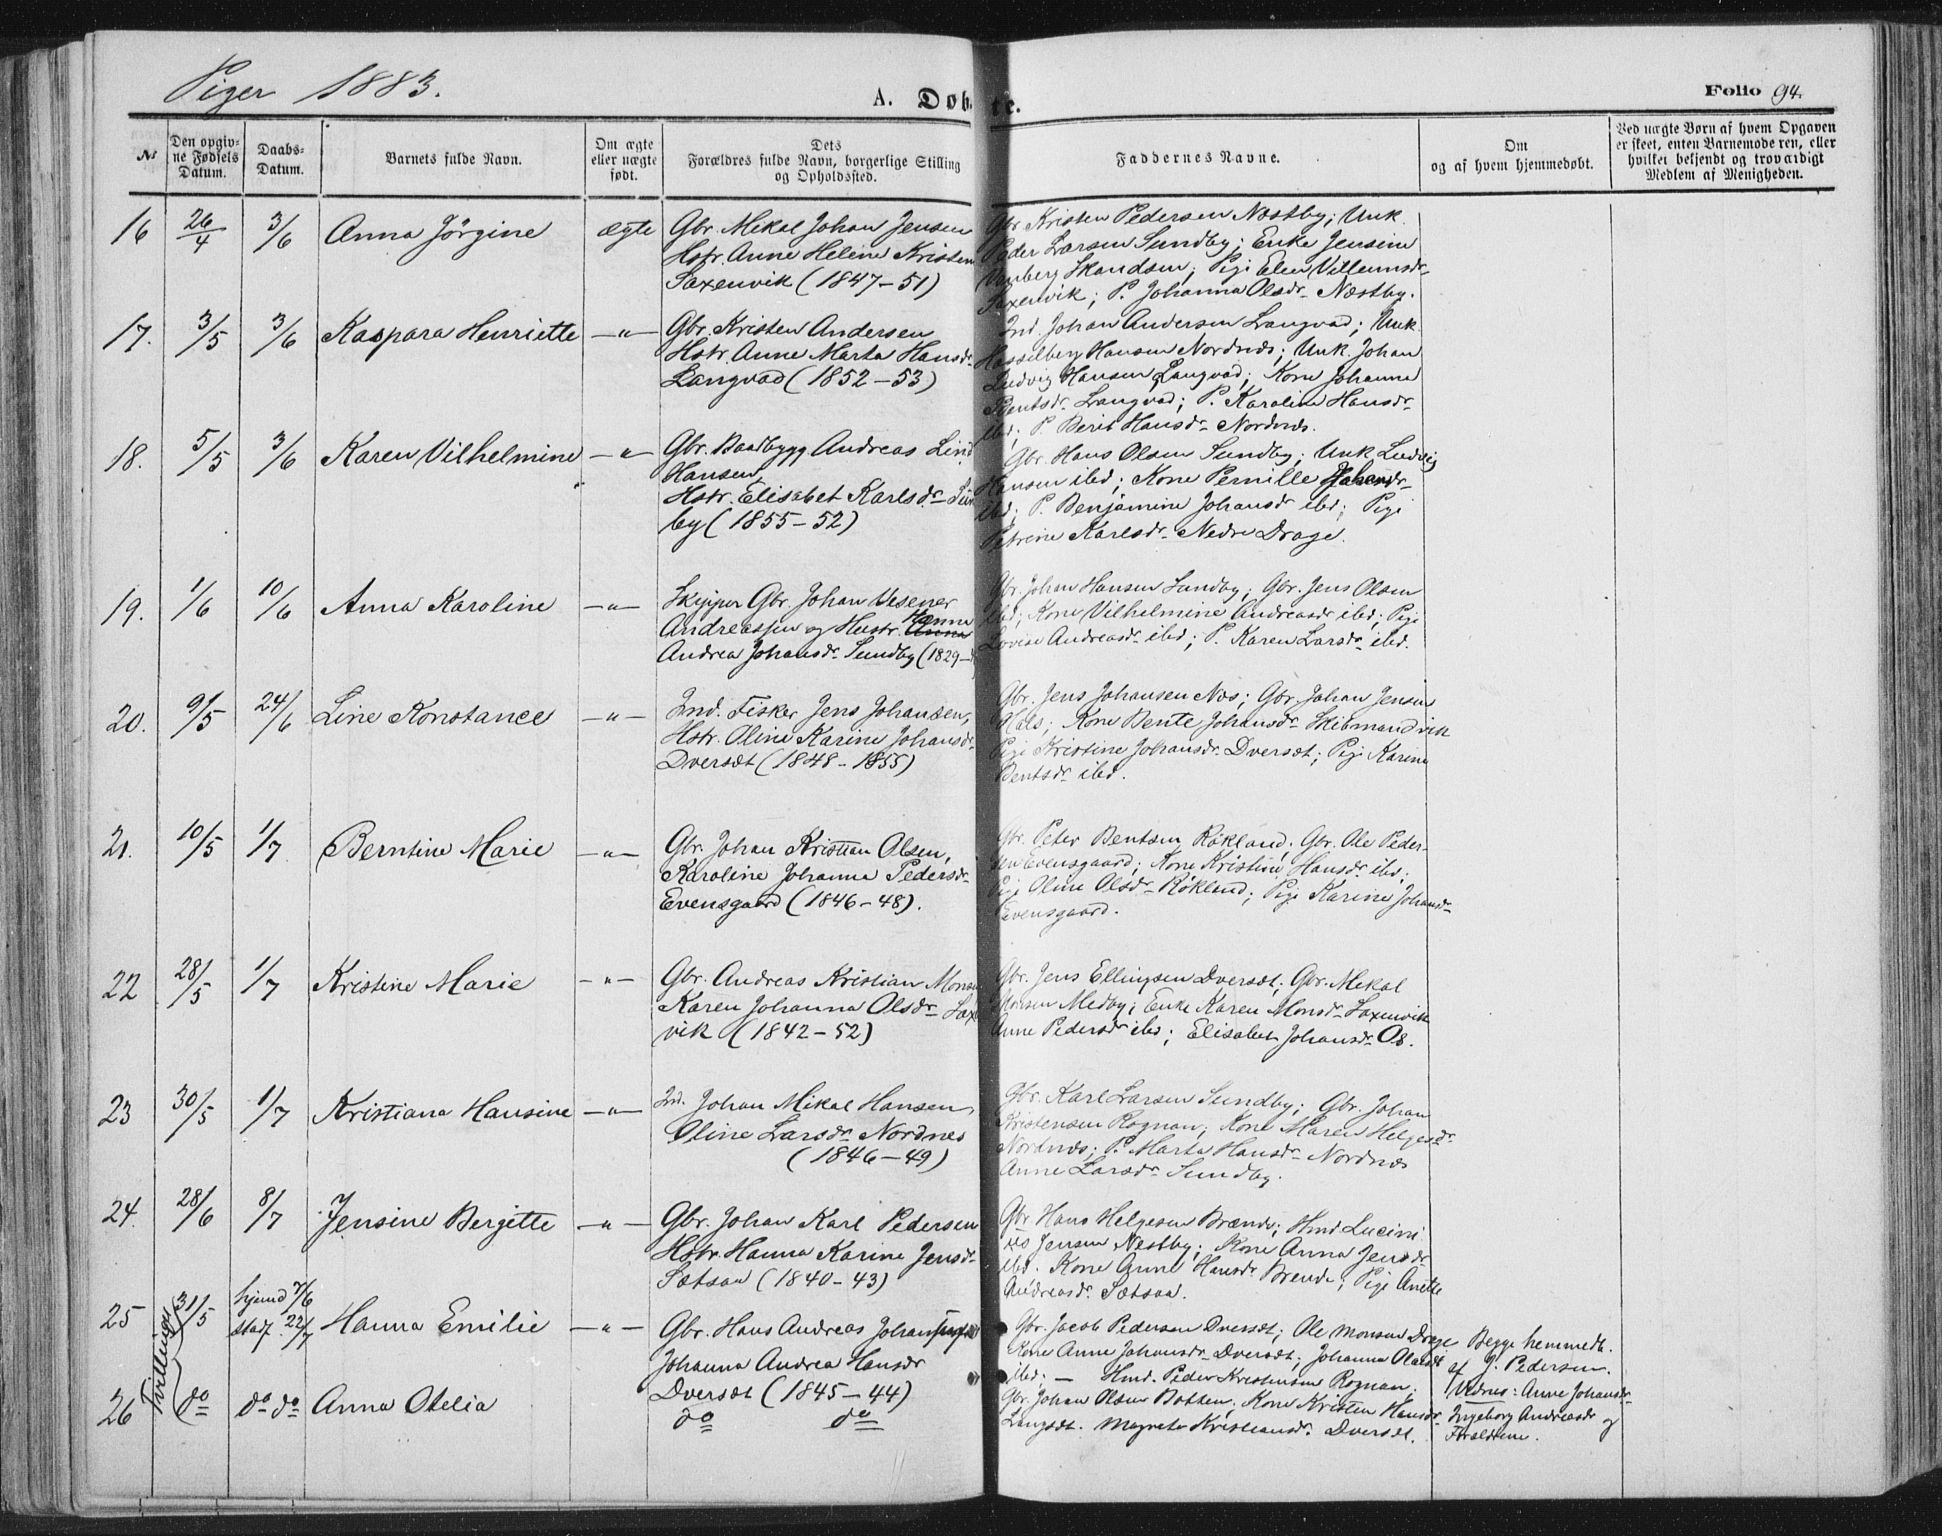 Piger 1883.
A. Døb
te.
Folio 94.
№
Den opgiv-
ne Fødsels
Datum.
Daabs-
Datum.
Barnets fulde Navn.
Om ægte
eller uægte
født.
Dets
Forældres fulde Navn, borgerlige Stilling
og Opholdssted.
Faddernes Navne.
Om
og af hvem hjemmedøbt.
Ved uægte Børn af hvem Opgaven
er skeet, enten Barnemoderen, eller
hvilket bekjendt og troværdigt
Medlem af Menigheden.
16 26/4 3/6 Anna Jørgine ægte Gbr. Mikal Johan Jensen
Hstr. Anne Helene Kristen
Saxenvik (1847-51)
Gbr Kristen Pedersen Næstby; Unk.
Peder Larsen Sundby; Enke Jensine
Skandsen; Pige Elen Villumsdr
Saxenvik; P. Johanna Olsdr Næstby.
17. 3/5 3/6 Kaspara Henriette -"- Gbr. Kristen Andersen
Hstr. Anne Marta Hansdr
Langvad (1852-53)
Ind. Johan Andersen Langvad; Unk
Hasselberg Hansen Nordnæs; Unk. Johan
Ludvig Hansen Langvad; Kone Johanna
Bentsdr Langvad; P. Karoline Hansdr
ibd; P. Berit Hansdr Nordnæs.
18. 5/5 3/6 Karen Vilhelmine -"- Gbr. Baadbygg Andreas Lind
Hansen
Hstr. Elisabet Karlsdr Sun
by (1855-52)
Gbr. Hans Olsen Sundby; Unk Ludvig
Hansen ibd; Kone Pernille Johansdr
ibd; P. Benjamine Johansdr ibd; Pige
Petrine Karlsdr Nedre Drage.
19. 1/6 10/6 Anna Karoline -"- Skipper Gbr. Johan Vesener
Andreassen og Hustr. Hanna
Andrea Johansdr Sundby (1829-
Gbr. Johan Hansen Sundby; Gbr. Jens Olsen
ibd; Kone Vilhelmine Andreasdr ibd; Pige
Lovise Andreasdr ibd; P. Karen Larsdr ibd.
20. 9/5 24/6 Line Konstance -"- Ind. Fisker Jens Johansen,
Hstr. Oline Karine Johansdr
Dverset (1848-1855)
Gbr. Jens Johansen Næs; Gbr. Johan Jensen
Hals; Kone Bente Johansdr Skibmandvik
Pige Kristine Johansdr Dverset; Pige Karine
Bentsdr ibd.
21. 10/5 1/7 Berntine Marie -"- Gbr. Johan Kristian Olsen,
Karoline Johanna Pedersdr
Evensgaard (1846-48).
Gbr. Peter Bentsen Røkland; Gbr. Ole Peder-
sen Evensgaard; Kone Kristine Hansdr ibd;
Pige Oline Olsdr Røkland; Pige Karine Johansdr
Evensgaard.
22 28/5 1/7 Kristine Marie -"- Gbr. Andreas Kristian Monsen
Karen Johanna Olsdr Sax
vik (1842-52)
Gbr. Jens Ellingsen Dverset; Gbr. Mikal
Monsen Medby; Enke Karen Monsdr Saxenvik
Anne Pedersdr ibd; Elisabet Johansdr Os.
23 30/5 1/7 Kristiana Hansine -"- Ind. Johan Mikal Hansen
Oline Larsdr Nordnes
(1846-49)
Gbr. Karl Larsen Sundby; Gbr. Johan
Kristensen Rognan; Kone Maren Helgesdr
Nordnæs; P. Marta Hansdr Nordnæs
Anne Larsdr Sundby.
24. 28/6 8/7 Jensine Bergitte -"- Gbr. Johan Karl Pedersen
Hstr. Hanna Karine Jensdr
Sætsaa (1840-43)
Gbr Hans Helgesen Brænde; Hmd. Lucini
us Jensen Nestby; Kone Anna Jensdr
ibd. Kone Anne Hansdr Brende; Pige Anette
Andreasdr Sætsaa.
Tvillinger
25 31/5 hjemd 7/6
stadf. 22/7 Hanna Emilie -"- Gbr. Hans Andreas Johansen
Johanna Andrea Hansdr
Dverset (1845-44)
Gbr. Jacob Pedersen Dverset; Ole Monsen Drage
Kone Anne Johansdr Dverset; Johanna Olsdr
ibd. - Hmd. Peder Kristensen Rognan;
Begge hemmedt.
af J. Pedersen.
Vidnes: Anne Johansdr
Ingeborg Andreasdr og
Forældrene.
26 do do do Anna Otelia
do do
Gbr. Johan Olsen Botten; Kone Kristen Hansdr
Langsdt. Magreta Kristiansdr Dverset.